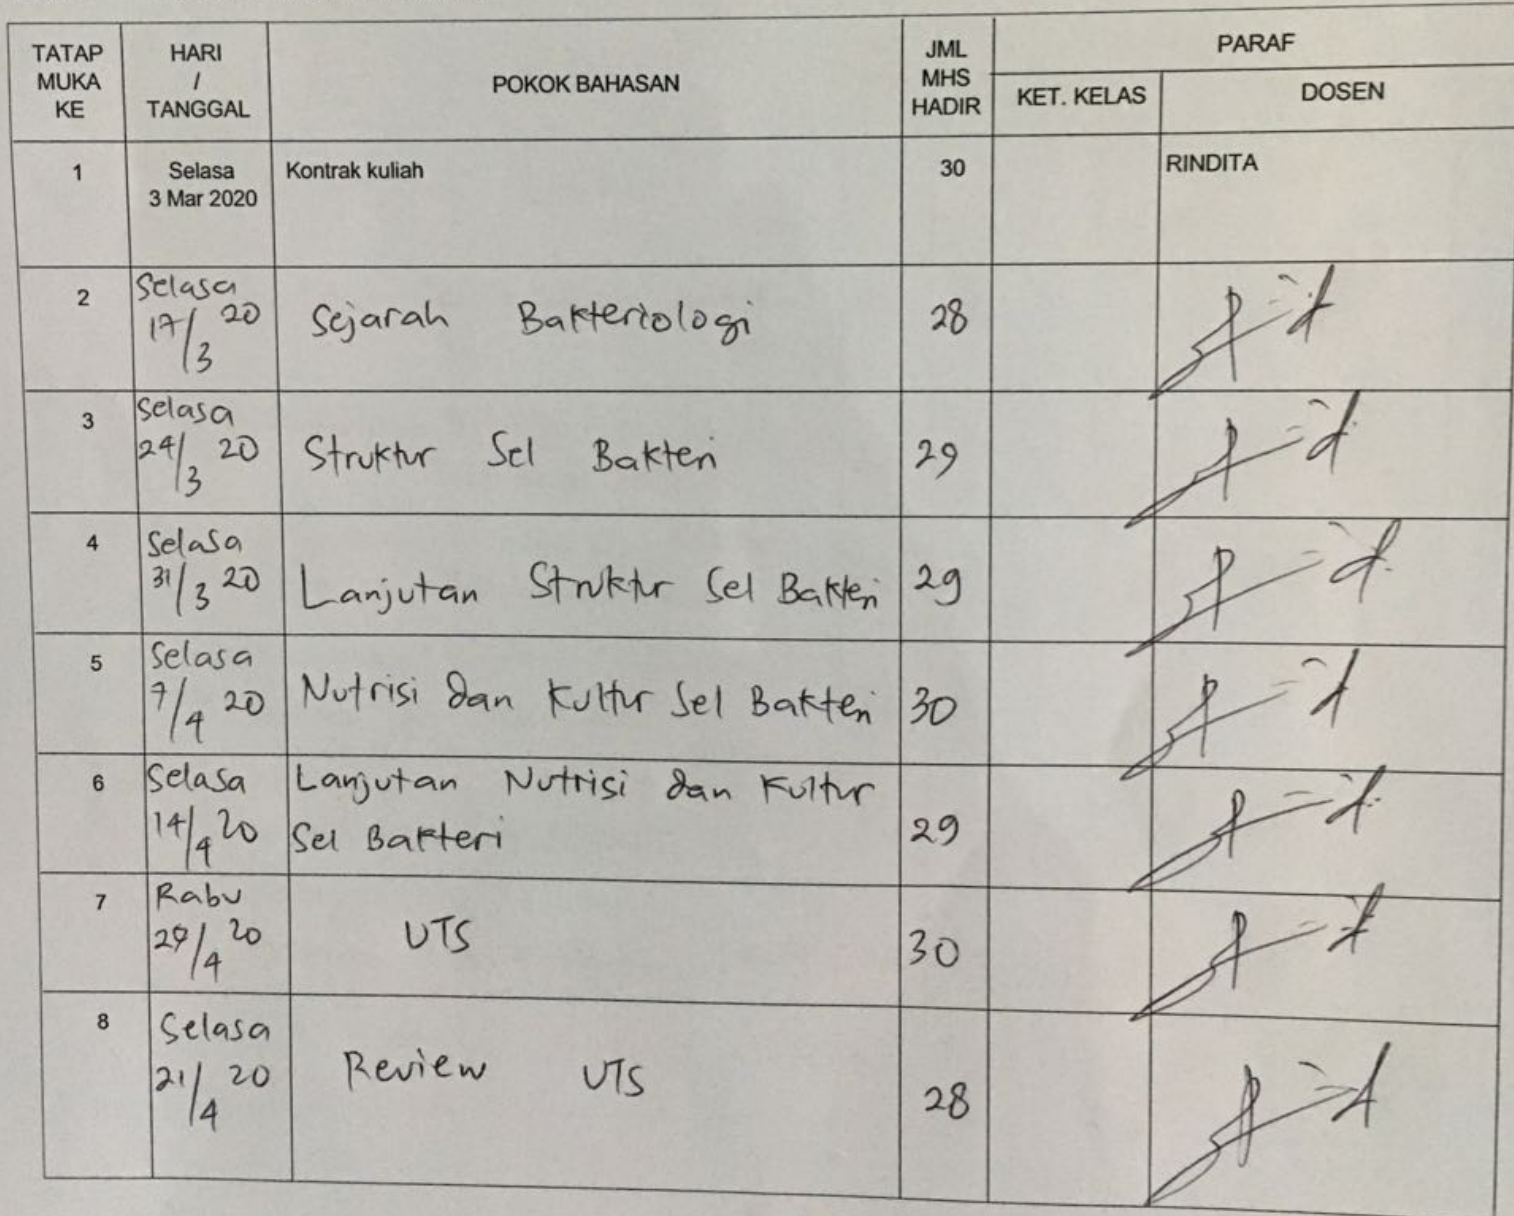 TATAP MUKA KE
HARI / TANGGAL
POKOK BAHASAN
JML MHS HADIR
PARAF
KET. KELAS
DOSEN
1
Selasa
3 Mar 2020
Kontrak kuliah
30
RINDITA
2
Selasa
17/3 20
Sejarah Bakteriologi
28
3
Selasa
24/3 20
Struktur Sel Bakteri
29
4
Selasa
31/3 20
Lanjutan Struktur Sel Bakteri
29
5
Selasa
7/4 20
Nutrisi dan Kultur Sel Bakteri
30
6
Selasa
14/4 20
Lanjutan Nutrisi dan Kultur
Sel Bakteri
29
7
Rabu
29/4 20
UTS
30
8
Selasa
21/4 20
Review UTS
28